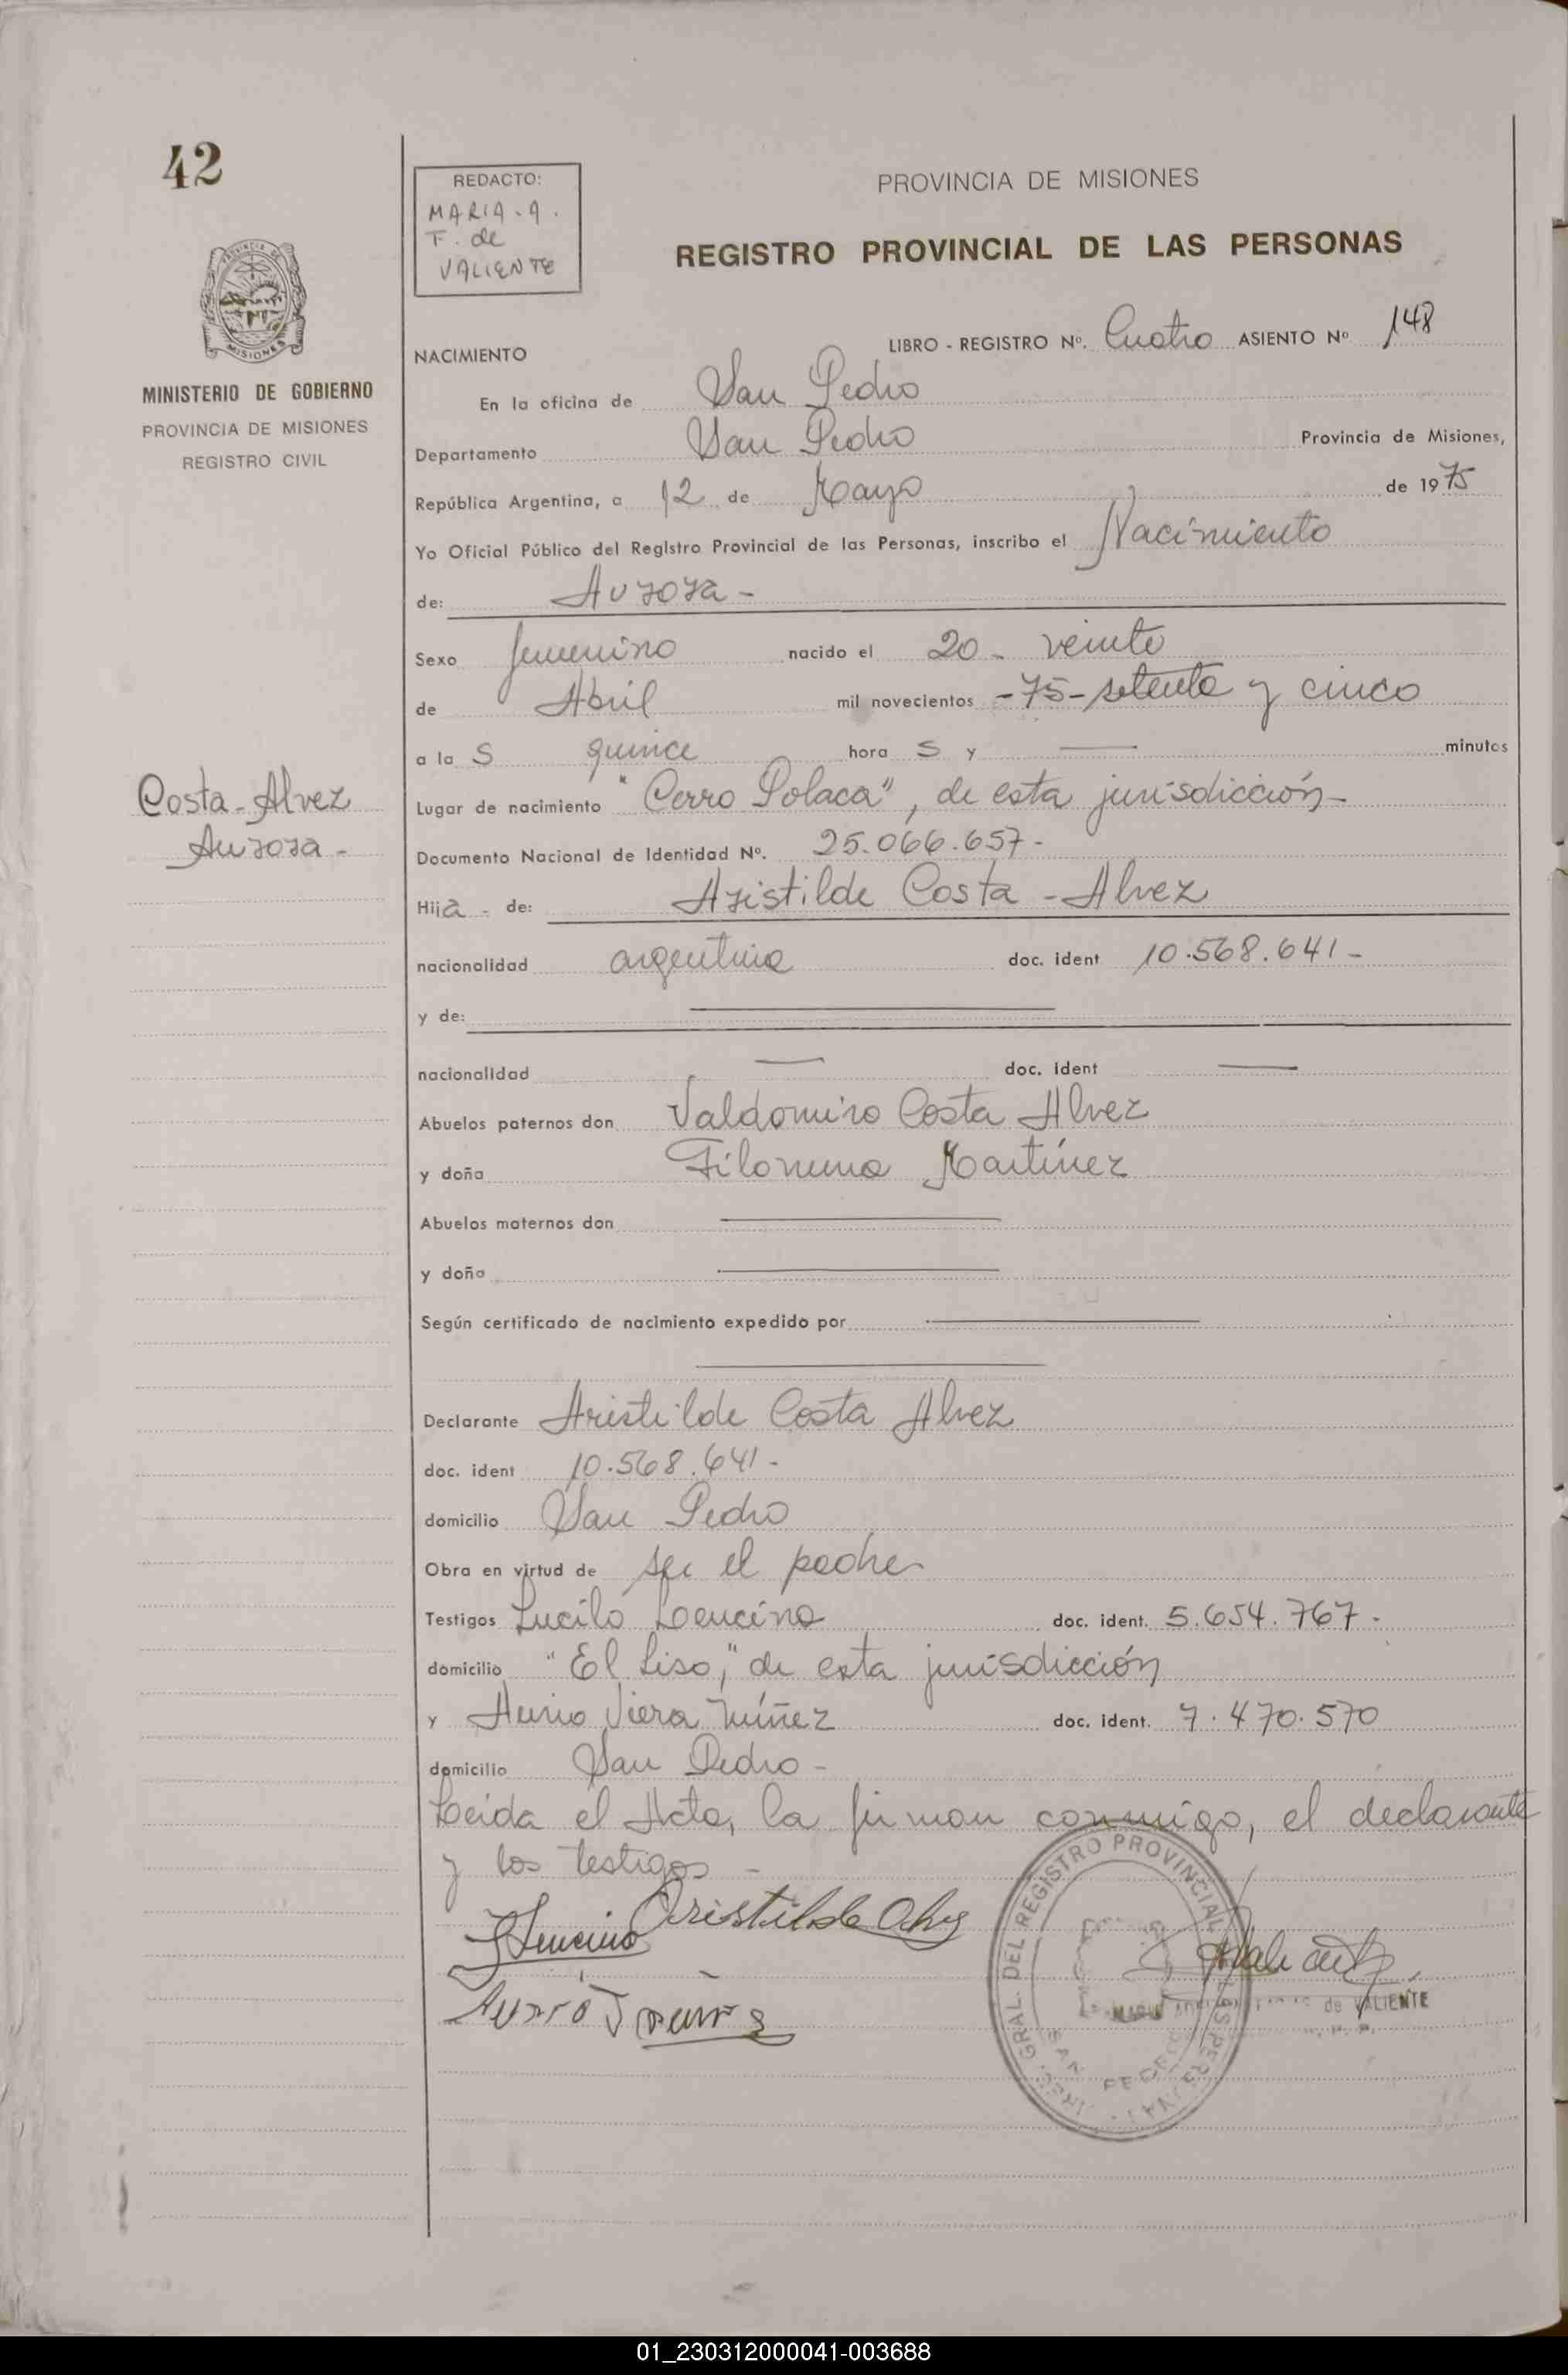 42
REDACTO:
MARIA. A.
F. de
VALIENTE
PROVINCIA DE MISIONES
REGISTRO PROVINCIAL DE LAS PERSONAS
MISIONES
MINISTERIO DE GOBIERNO
PROVINCIA DE MISIONES
REGISTRO CIVIL
LIBRO - REGISTRO Nº. Cuatro ASIENTO Nº 148
NACIMIENTO
En la oficina de San Pedro
Departamento San Pedro Provincia de Misiones,
República Argentina, a 12 de Mayo de 1975
Yo Oficial Público del Registro Provincial de las Personas, inscribo el Nacimiento
de: Aurora -
Sexo femenino nacido el 20 - veinte
de Abril mil novecientos - 75 - setenta y cinco
a la S quince hora S y minutos
Costa - Alvez
Aurora -
Lugar de nacimiento "Cerro Polaca", de esta jurisdicción -
Documento Nacional de Identidad Nº. 25.066.657 -
Hija - de: Aristilde Costa - Alvez
nacionalidad argentina doc. ident 10.568.641 -
y de:
nacionalidad doc. ident
Abuelos paternos don Valdomiro Costa Alvez
y doña Filomena Martínez
Abuelos maternos don
y doña
Según certificado de nacimiento expedido por
Declarante Aristilde Costa Alvez
doc. ident 10.568.641 -
domicilio San Pedro
Obra en virtud de ser el padre
Testigos Lucilo Leucino doc. ident. 5.654.767 -
domicilio "El Liso," de esta jurisdicción
y Aurio Viera Núñez doc. ident. 7.470.570
domicilio San Pedro -
Leida el Acta, la firman conmigo, el declarante
y los testigos -
Aristilde
DEL REGISTRO PROVINCIAL
de VALIENTE
SAN PEDRO
01_230312000041-003688